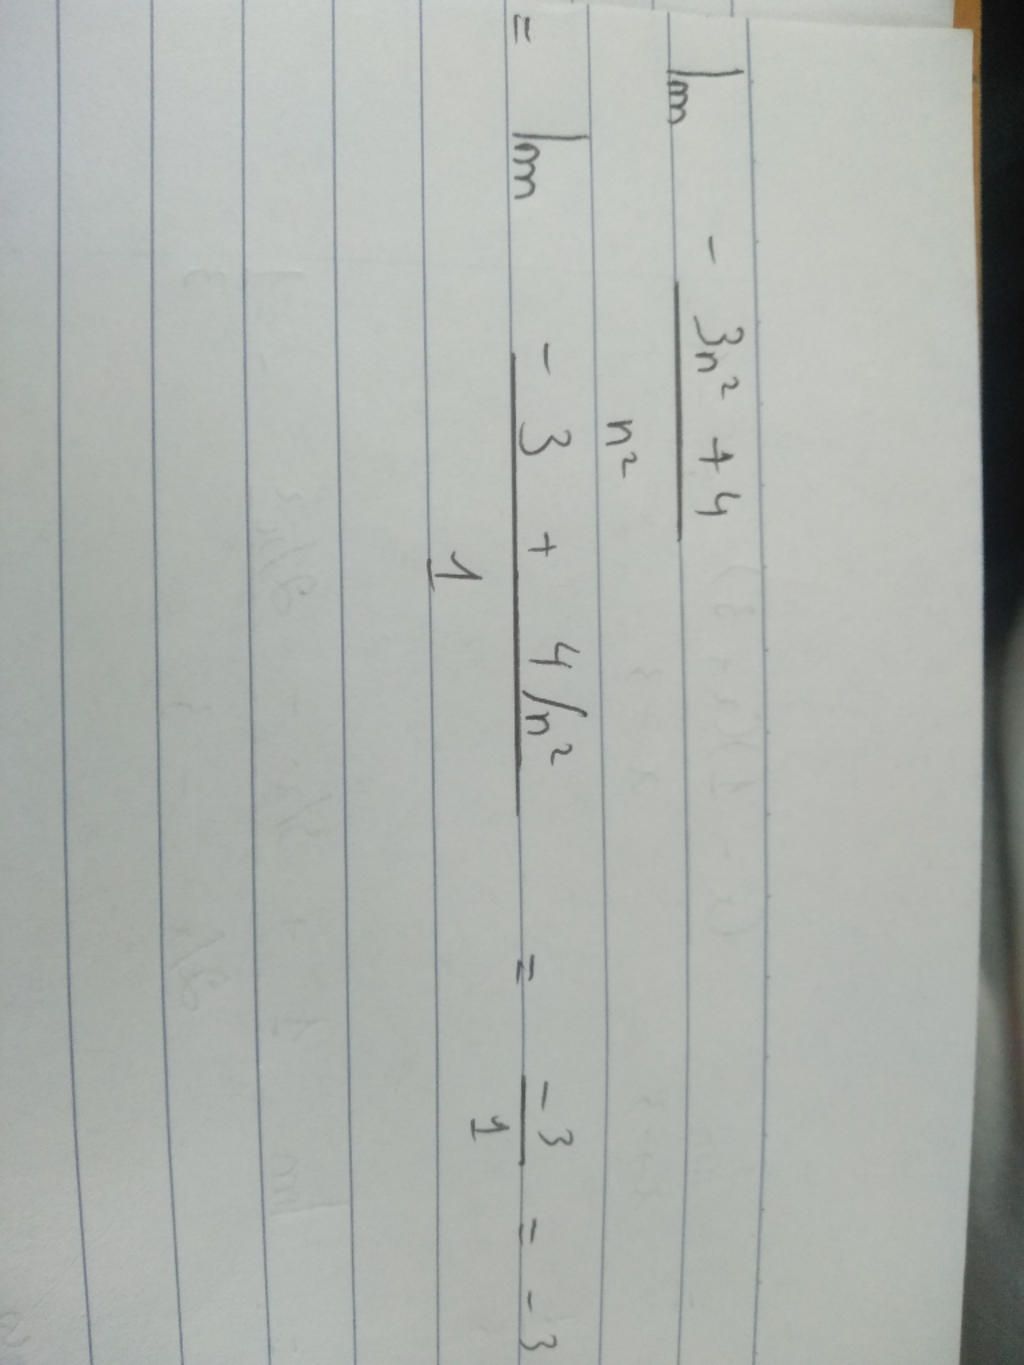 lm - 3n² + 4
n²
= lm - 3 + 4/n² = -3 = -3
1 1